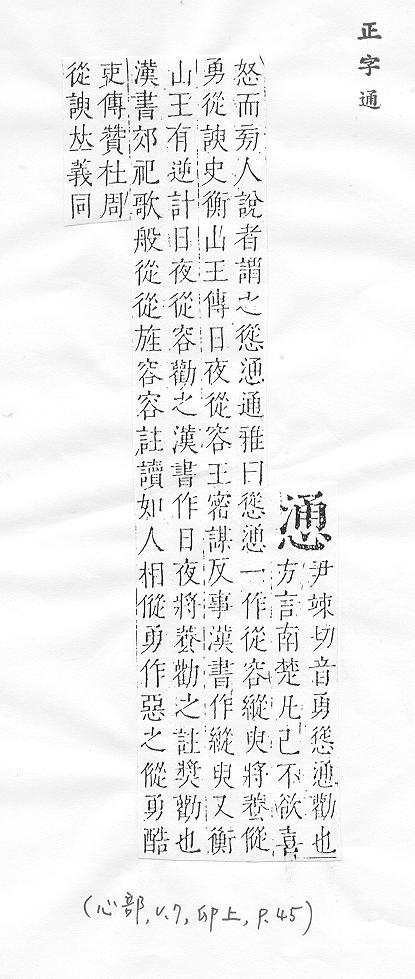 正字通
慂
尹竦切音勇慫慂勸也
方言南楚凡己不欲喜
怒而旁人說者謂之慫慂通雅曰慫慂一作從容縱臾將養傱
勇從諛史衡山王傳日夜從容王密謀反事漢書作縱臾又衡
山王有逆計日夜從容勸之漢書作日夜將養勸之註奬勸也
漢書郊祀歌般從從旌容容註讀如人相傱勇作惡之傱勇酷
吏傳贊杜周
從諛𠀤義同
(心部, v.7, 卯上, p.45)